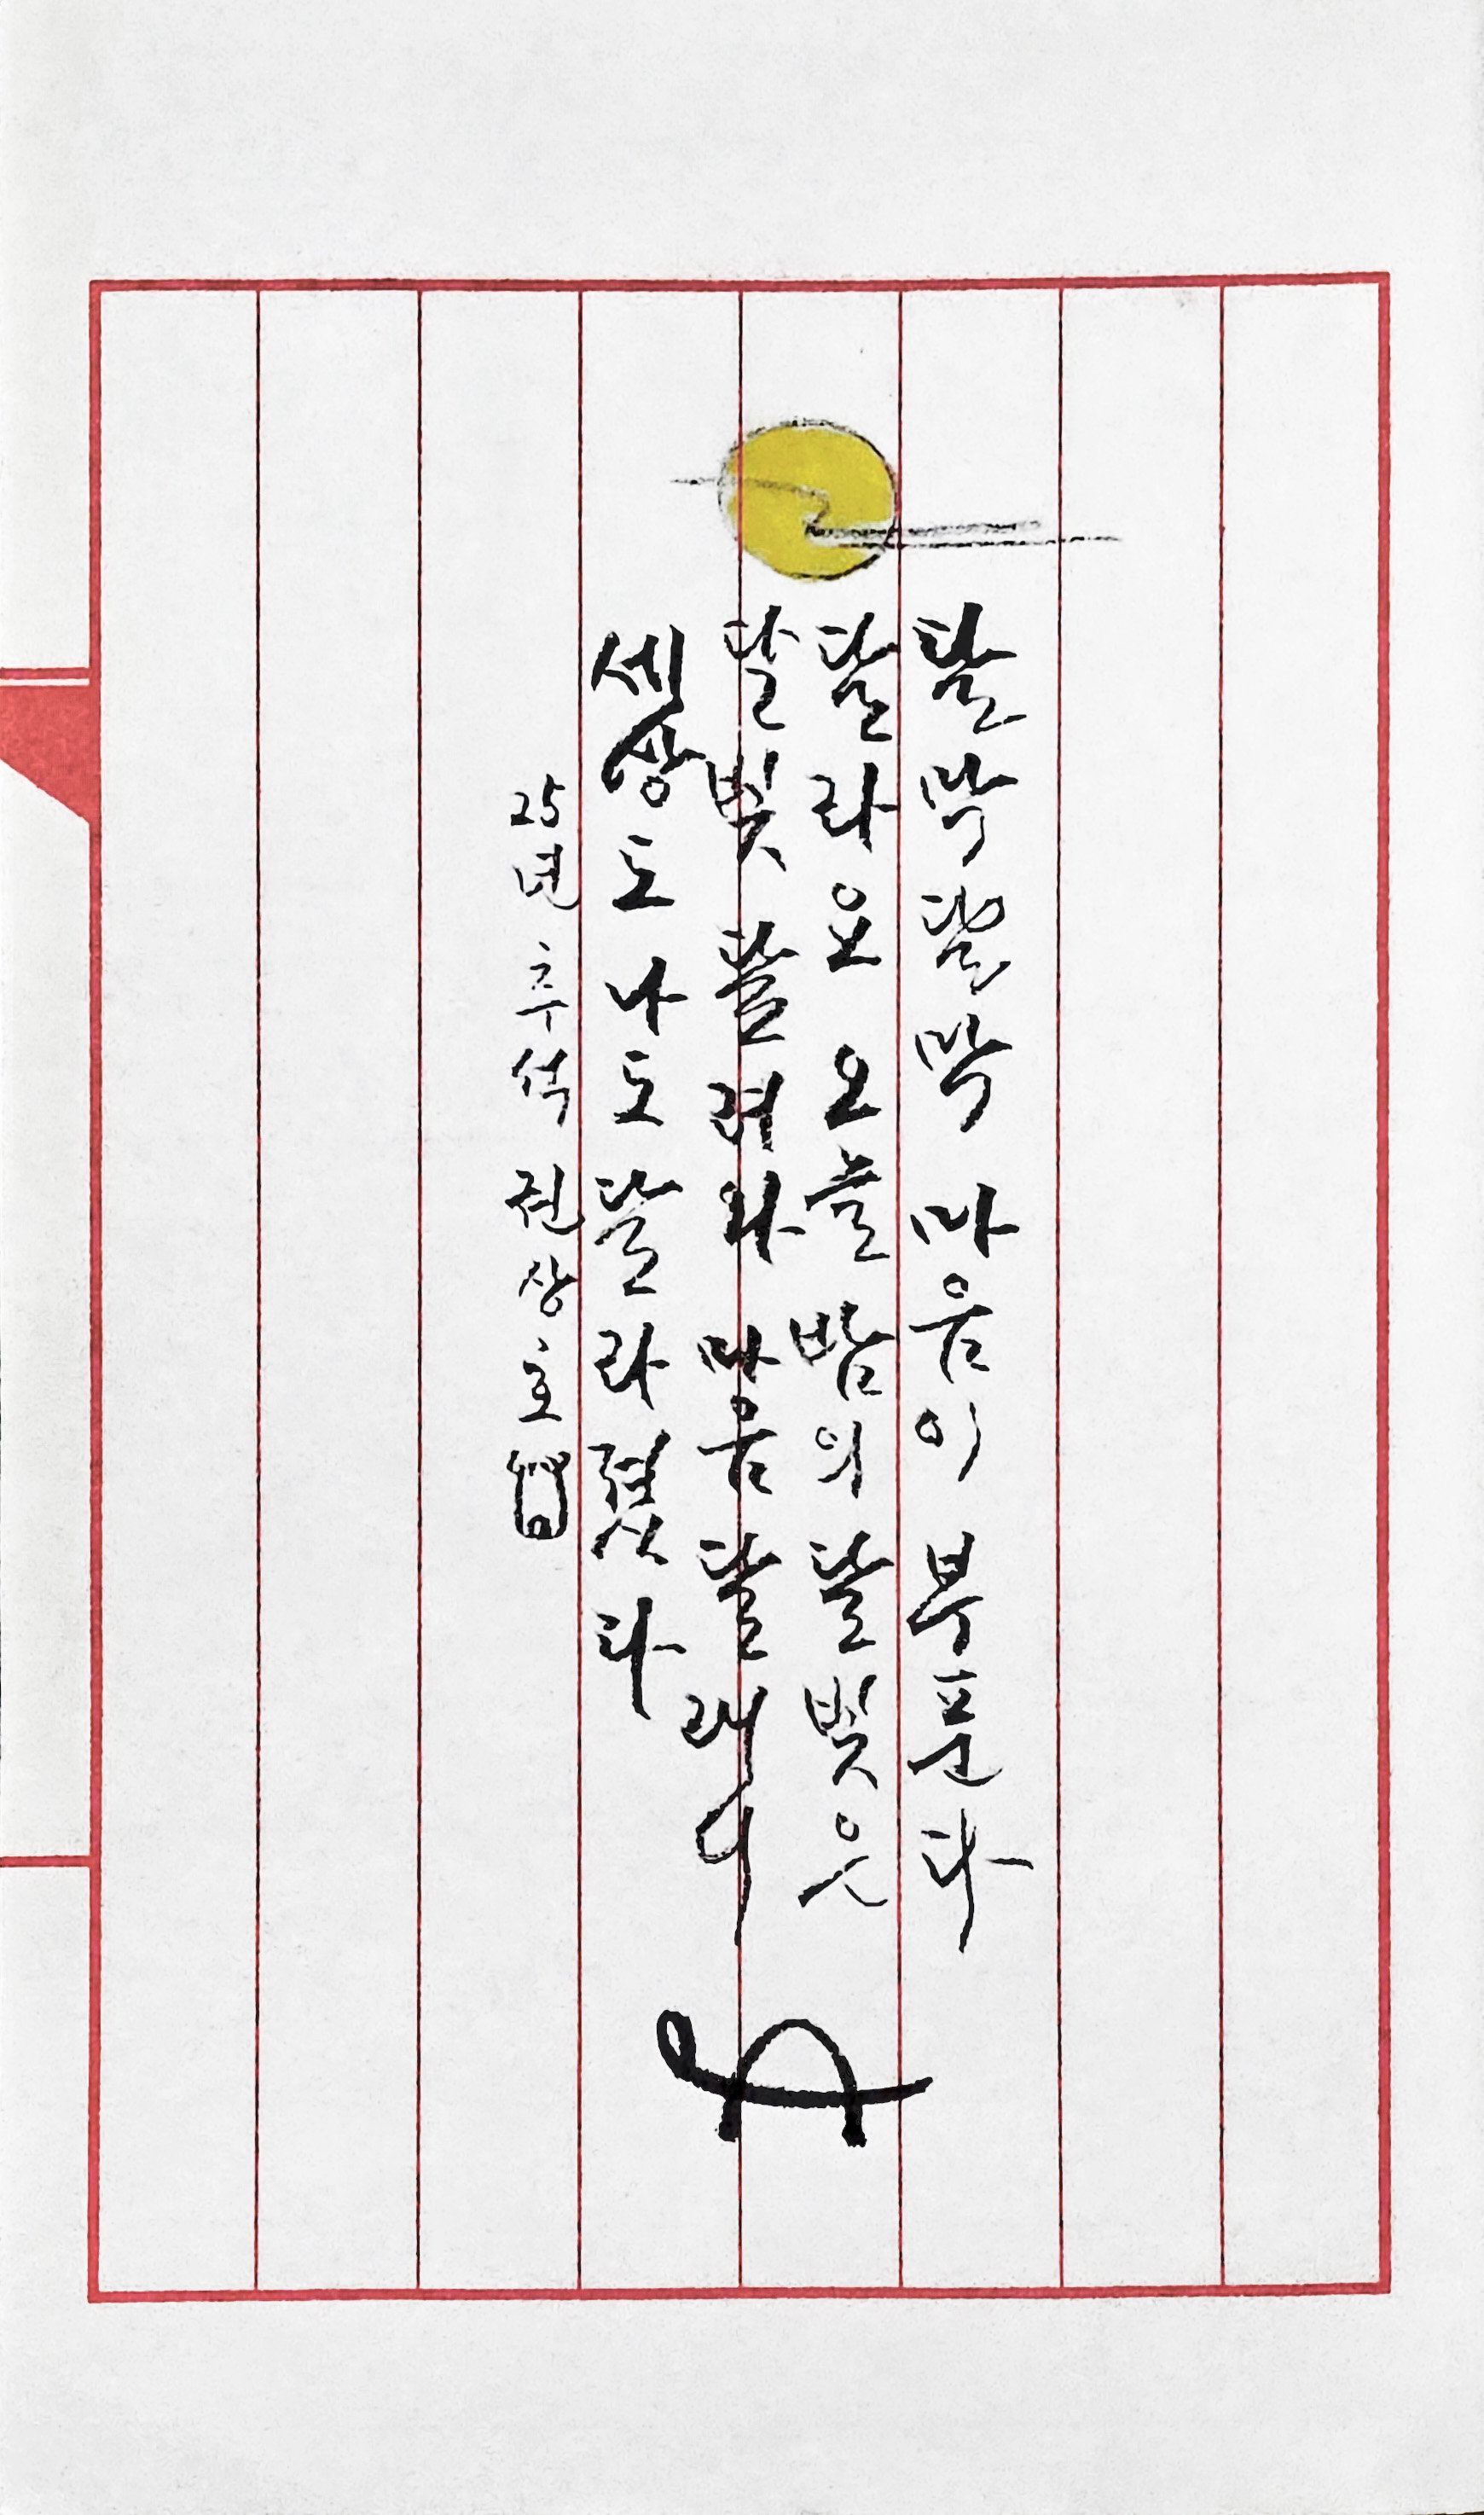 달막달막 마음이 부푼다
달라요 오늘 밤의 달빛은
달빛 달려와 마음 달래이
세상도 나도 달라졌다
25년 추석 전상호